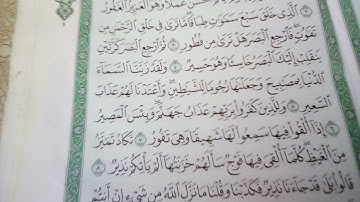 عملا وهو العزيز الغفور
٢ الذي خلق سبع سموت طباقا ما ترى في خلق الرحمن من
تفوت فارجع البصر هل ترى من فطور ٣ ثم ارجع البصر كرتين
ينقلب إليك البصر خاسئا وهو حسير ٤ ولقد زينا السماء
الدنيا بمصبيح وجعلنها رجوما للشيطين وأعتدنا لهم عذاب
السعير ٥ وللذين كفروا بربهم عذاب جهنم وبئس المصير
٦ إذا ألقوا فيها سمعوا لها شهيقا وهي تفور ٧ تكاد تميز
من الغيظ كلما ألقي فيها فوج سألهم خزنتها ألم يأتكم نذير ٨
قالوا بلى قد جاءنا نذير فكذبنا وقلنا ما نزل الله من شيء إن أنتم